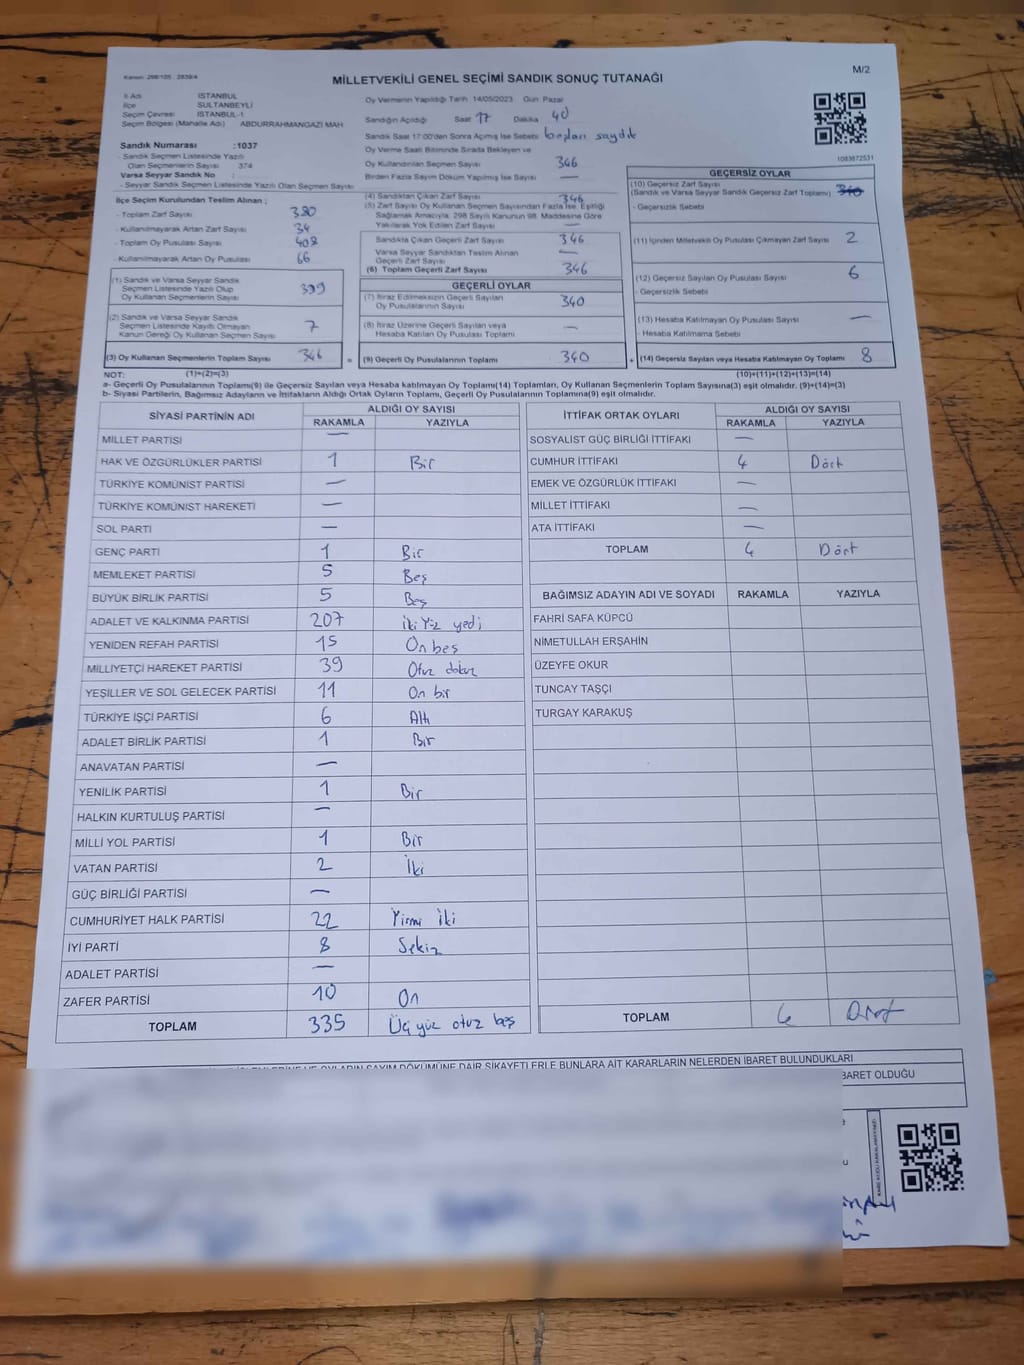 Kanun: 298/105 2839/4
MİLLETVEKİLİ GENEL SEÇİMİ SANDIK SONUÇ TUTANAĞI
M/2
İl Adı İSTANBUL
İlçe SULTANBEYLİ
Seçim Çevresi İSTANBUL-1
Seçim Bölgesi (Mahalle Adı) ABDURRAHMANGAZİ MAH
Sandık Numarası :1037
- Sandık Seçmen Listesinde Yazılı
Olan Seçmenlerin Sayısı 374
Varsa Seyyar Sandık No :
- Seyyar Sandık Seçmen Listesinde Yazılı Olan Seçmen Sayısı
İlçe Seçim Kurulundan Teslim Alınan ;
- Toplam Zarf Sayısı 380
- Kullanılmayarak Artan Zarf Sayısı 34
- Toplam Oy Pusulası Sayısı 408
- Kullanılmayarak Artan Oy Pusulası 66
(1) Sandık ve Varsa Seyyar Sandık
Seçmen Listesinde Yazılı Olup
Oy Kullanan Seçmenlerin Sayısı 339
(2) Sandık ve Varsa Seyyar Sandık
Seçmen Listesinde Kayıtlı Olmayan
Kanun Gereği Oy Kullanan Seçmen Sayısı 7
(3) Oy Kullanan Seçmenlerin Toplam Sayısı 346 =
Oy Vermenin Yapıldığı Tarih 14/05/2023 Gün: Pazar
Sandığın Açıldığı Saat 17 Dakika 40
Sandık Saat 17:00'den Sonra Açılmış İse Sebebi saydık
Oy Verme Saati Bitiminde Sırada Bekleyen ve
Oy Kullandırılan Seçmen Sayısı 346
Birden Fazla Sayım Döküm Yapılmış İse Sayısı —
(4) Sandıktan Çıkan Zarf Sayısı 346
(5) Zarf Sayısı Oy Kullanan Seçmen Sayısından Fazla İse, Eşitliği
Sağlamak Amacıyla, 298 Sayılı Kanunun 98. Maddesine Göre
Yakılarak Yok Edilen Zarf Sayısı —
Sandıkta Çıkan Geçerli Zarf Sayısı 346
Varsa Seyyar Sandıktan Teslim Alınan
Geçerli Zarf Sayısı —
(6) Toplam Geçerli Zarf Sayısı 346
GEÇERLİ OYLAR
(7) İtiraz Edilmeksizin Geçerli Sayılan
Oy Pusulalarının Sayısı 340
(8) İtiraz Üzerine Geçerli Sayılan veya
Hesaba Katılan Oy Pusulası Toplamı —
(9) Geçerli Oy Pusulalarının Toplamı 340 +
1083672531
GEÇERSİZ OYLAR
(10) Geçersiz Zarf Sayısı
(Sandık ve Varsa Seyyar Sandık Geçersiz Zarf Toplamı)
- Geçersizlik Sebebi
(11) İçinden Milletvekili Oy Pusulası Çıkmayan Zarf Sayısı 2
(12) Geçersiz Sayılan Oy Pusulası Sayısı 6
- Geçersizlik Sebebi
(13) Hesaba Katılmayan Oy Pusulası Sayısı —
- Hesaba Katılmama Sebebi
(14) Geçersiz Sayılan veya Hesaba Katılmayan Oy Toplamı 8
NOT: (1)+(2)=(3) (10)+(11)+(12)+(13)=(14)
a- Geçerli Oy Pusulalarının Toplamı(9) ile Geçersiz Sayılan veya Hesaba katılmayan Oy Toplamı(14) Toplamları, Oy Kullanan Seçmenlerin Toplam Sayısına(3) eşit olmalıdır. (9)+(14)=(3)
b- Siyasi Partilerin, Bağımsız Adayların ve İttifakların Aldığı Ortak Oyların Toplamı, Geçerli Oy Pusulalarının Toplamına(9) eşit olmalıdır.
SİYASİ PARTİNİN ADI ALDIĞI OY SAYISI
RAKAMLA YAZIYLA
MİLLET PARTİSİ —
HAK VE ÖZGÜRLÜKLER PARTİSİ 1 Bir
TÜRKİYE KOMÜNİST PARTİSİ —
TÜRKİYE KOMÜNİST HAREKETİ —
SOL PARTİ —
GENÇ PARTİ 1 Bir
MEMLEKET PARTİSİ 5 Beş
BÜYÜK BİRLİK PARTİSİ 5 Beş
ADALET VE KALKINMA PARTİSİ 207 İki Yüz yedi
YENİDEN REFAH PARTİSİ 15 On beş
MİLLİYETÇİ HAREKET PARTİSİ 39 Otuz dokuz
YEŞİLLER VE SOL GELECEK PARTİSİ 11 On bir
TÜRKİYE İŞÇİ PARTİSİ 6 Altı
ADALET BİRLİK PARTİSİ 1 Bir
ANAVATAN PARTİSİ —
YENİLİK PARTİSİ 1 Bir
HALKIN KURTULUŞ PARTİSİ —
MİLLİ YOL PARTİSİ 1 Bir
VATAN PARTİSİ 2 İki
GÜÇ BİRLİĞİ PARTİSİ —
CUMHURİYET HALK PARTİSİ 22 Yirmi İki
İYİ PARTİ 8 Sekiz
ADALET PARTİSİ —
ZAFER PARTİSİ 10 On
TOPLAM 335 Üç yüz otuz beş
İTTİFAK ORTAK OYLARI ALDIĞI OY SAYISI
RAKAMLA YAZIYLA
SOSYALİST GÜÇ BİRLİĞİ İTTİFAKI —
CUMHUR İTTİFAKI 4 Dört
EMEK VE ÖZGÜRLÜK İTTİFAKI —
MİLLET İTTİFAKI —
ATA İTTİFAKI —
TOPLAM 4 Dört
BAĞIMSIZ ADAYIN ADI VE SOYADI RAKAMLA YAZIYLA
FAHRİ SAFA KÜPCÜ
NİMETULLAH ERŞAHİN
ÜZEYFE OKUR
TUNCAY TAŞÇI
TURGAY KARAKUŞ
TOPLAM 4 Dört
OYLARIN SAYIM DÖKÜMÜNE DAİR ŞİKAYETLERLE BUNLARA AİT KARARLARIN NELERDEN İBARET BULUNDUKLARI
İBARET OLDUĞU